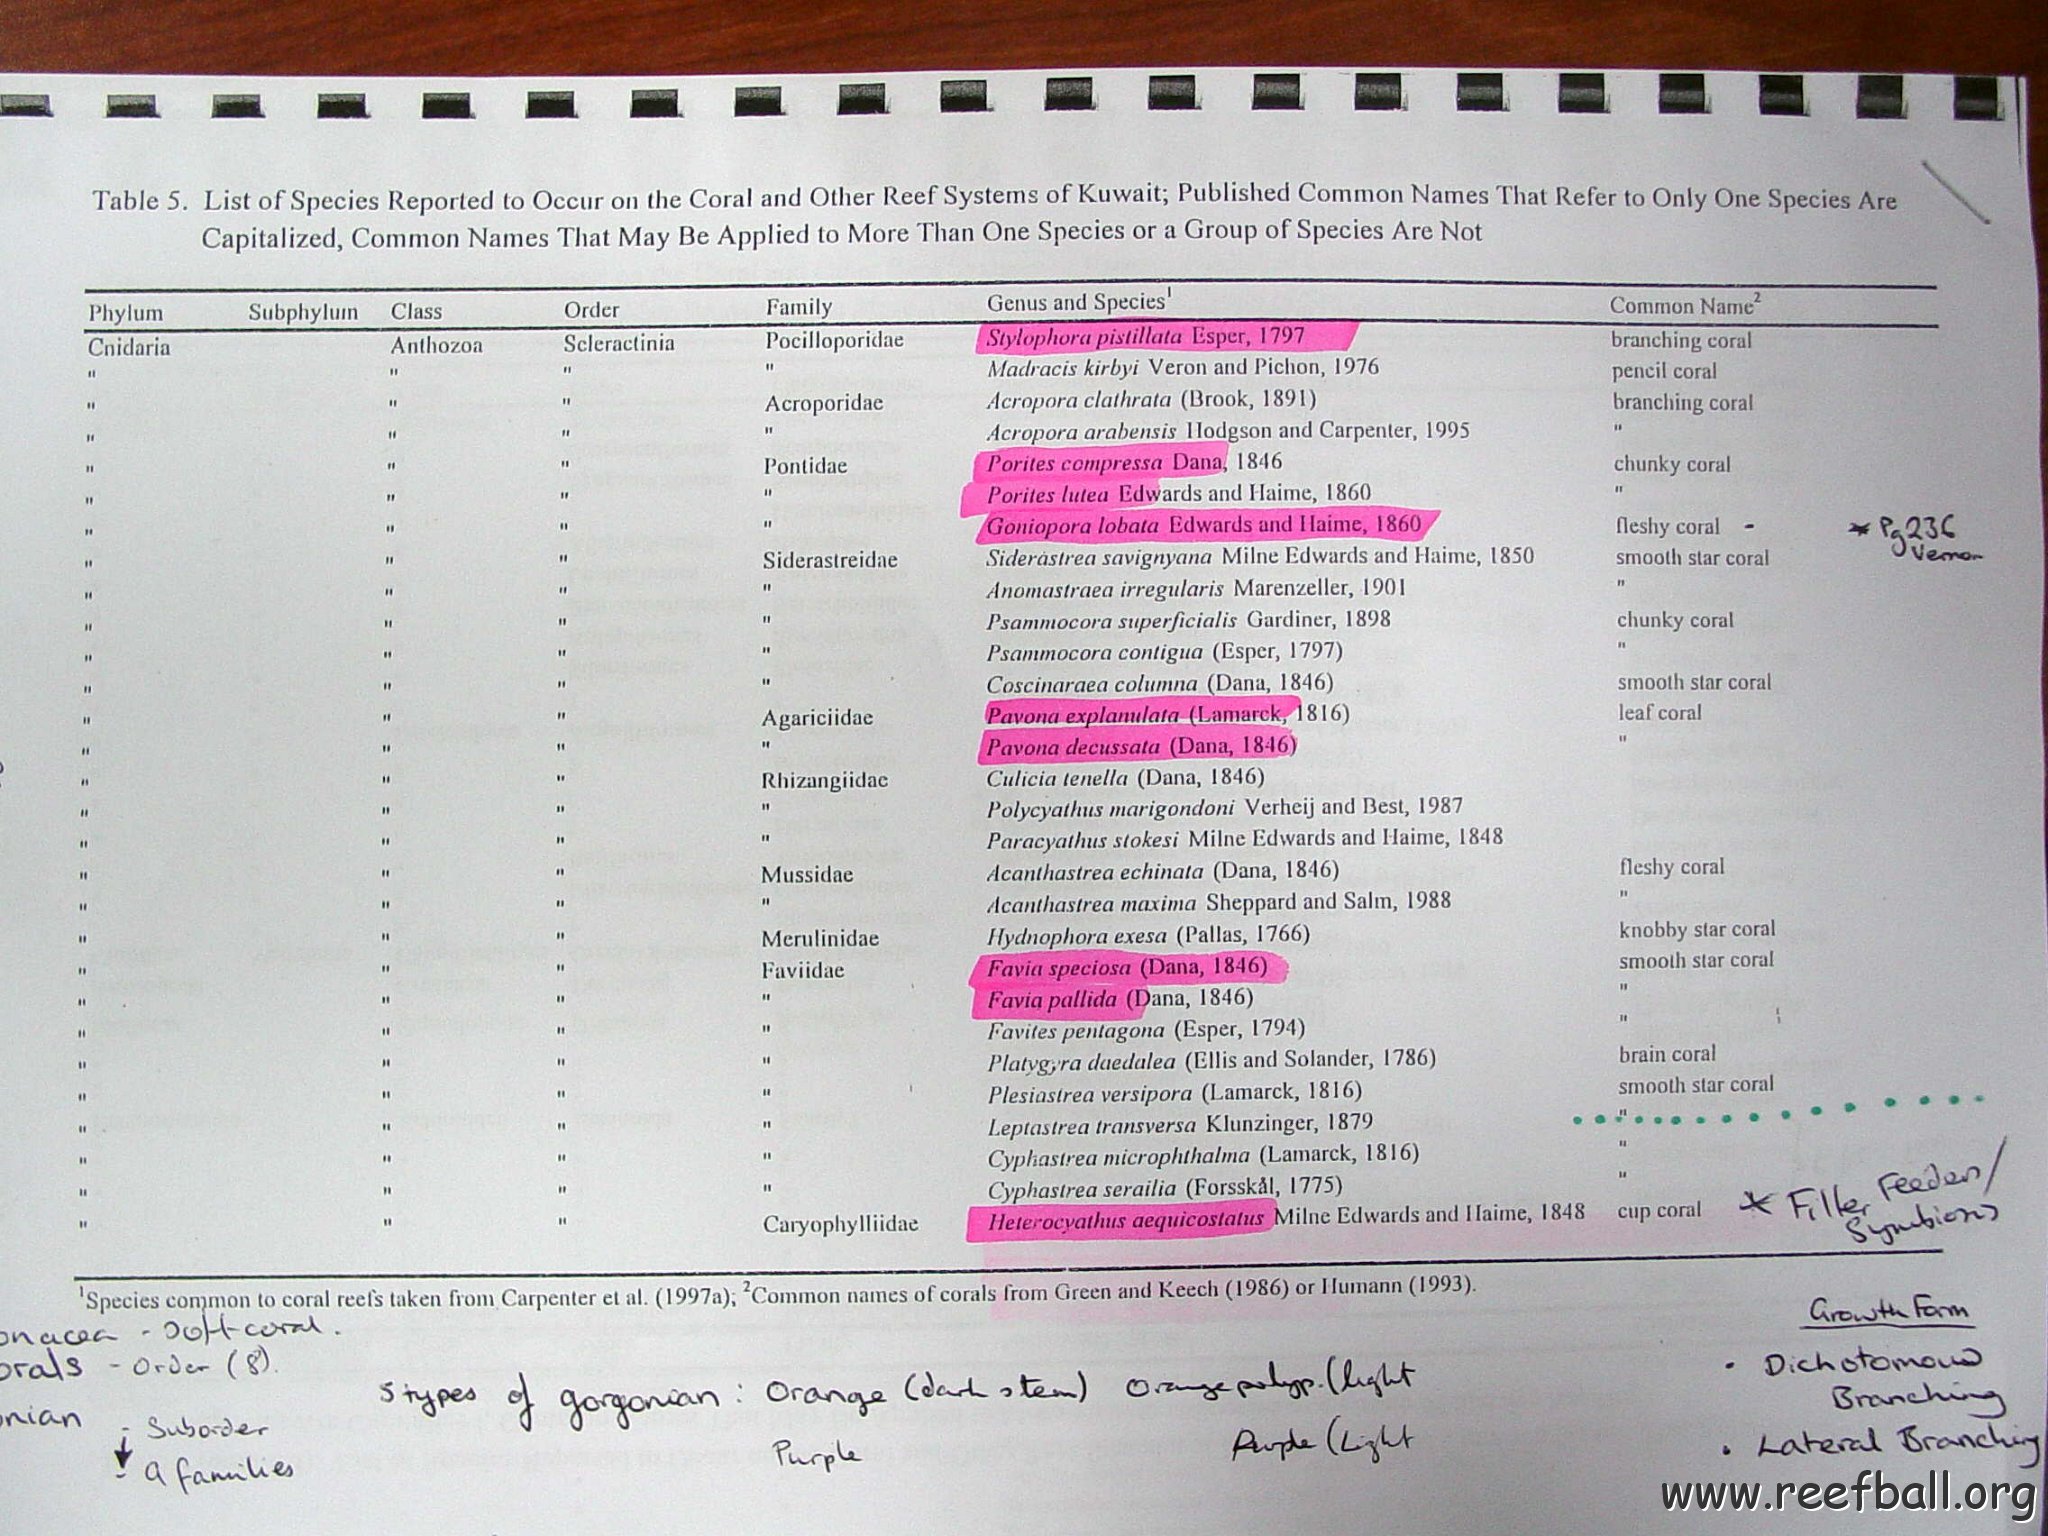 Table 5. List of Species Reported to Occur on the Coral and Other Reef Systems of Kuwait; Published Common Names That Refer to Only One Species Are
Capitalized, Common Names That May Be Applied to More Than One Species or a Group of Species Are Not
Phylum Subphylum Class Order Family Genus and Species¹ Common Name²
Cnidaria Anthozoa Scleractinia Pocilloporidae Stylophora pistillata Esper, 1797 branching coral
" " " " Madracis kirbyi Veron and Pichon, 1976 pencil coral
" " " Acroporidae Acropora clathrata (Brook, 1891) branching coral
" " " " Acropora arabensis Hodgson and Carpenter, 1995 "
" " " Pontidae Porites compressa Dana, 1846 chunky coral
" " " " Porites lutea Edwards and Haime, 1860 "
" " " " Goniopora lobata Edwards and Haime, 1860 fleshy coral - * Pg 236
Vernon
" " " Siderastreidae Siderastrea savignyana Milne Edwards and Haime, 1850 smooth star coral
" " " " Anomastraea irregularis Marenzeller, 1901 "
" " " " Psammocora superficialis Gardiner, 1898 chunky coral
" " " " Psammocora contigua (Esper, 1797) "
" " " " Coscinaraea columna (Dana, 1846) smooth star coral
" " " Agariciidae Pavona explanulata (Lamarck, 1816) leaf coral
" " " " Pavona decussata (Dana, 1846) "
" " " Rhizangiidae Culicia tenella (Dana, 1846)
" " " " Polycyathus marigondoni Verheij and Best, 1987
" " " " Paracyathus stokesi Milne Edwards and Haime, 1848
" " " Mussidae Acanthastrea echinata (Dana, 1846) fleshy coral
" " " " Acanthastrea maxima Sheppard and Salm, 1988 "
" " " Merulinidae Hydnophora exesa (Pallas, 1766) knobby star coral
" " " Faviidae Favia speciosa (Dana, 1846) smooth star coral
" " " " Favia pallida (Dana, 1846) "
" " " " Favites pentagona (Esper, 1794) "
" " " " Platygyra daedalea (Ellis and Solander, 1786) brain coral
" " " " Plesiastrea versipora (Lamarck, 1816) smooth star coral
" " " " Leptastrea transversa Klunzinger, 1879 "
" " " " Cyphastrea microphthalma (Lamarck, 1816) "
" " " " Cyphastrea serailia (Forsskål, 1775) "
" " " Caryophylliidae Heterocyathus aequicostatus Milne Edwards and Haime, 1848 cup coral * Filter Feeders/
Symbiosis
¹Species common to coral reefs taken from Carpenter et al. (1997a); ²Common names of corals from Green and Keech (1986) or Humann (1993).
onacea - Soft coral.
orals - Order (8).
nian - Suborder
- 9 families
5 types of gorgonian: Orange (dark stem) Orange polyp. (light
Purple Purple (Light
Growth Form
• Dichotomous
Branching
• Lateral Branching
www.reefball.org